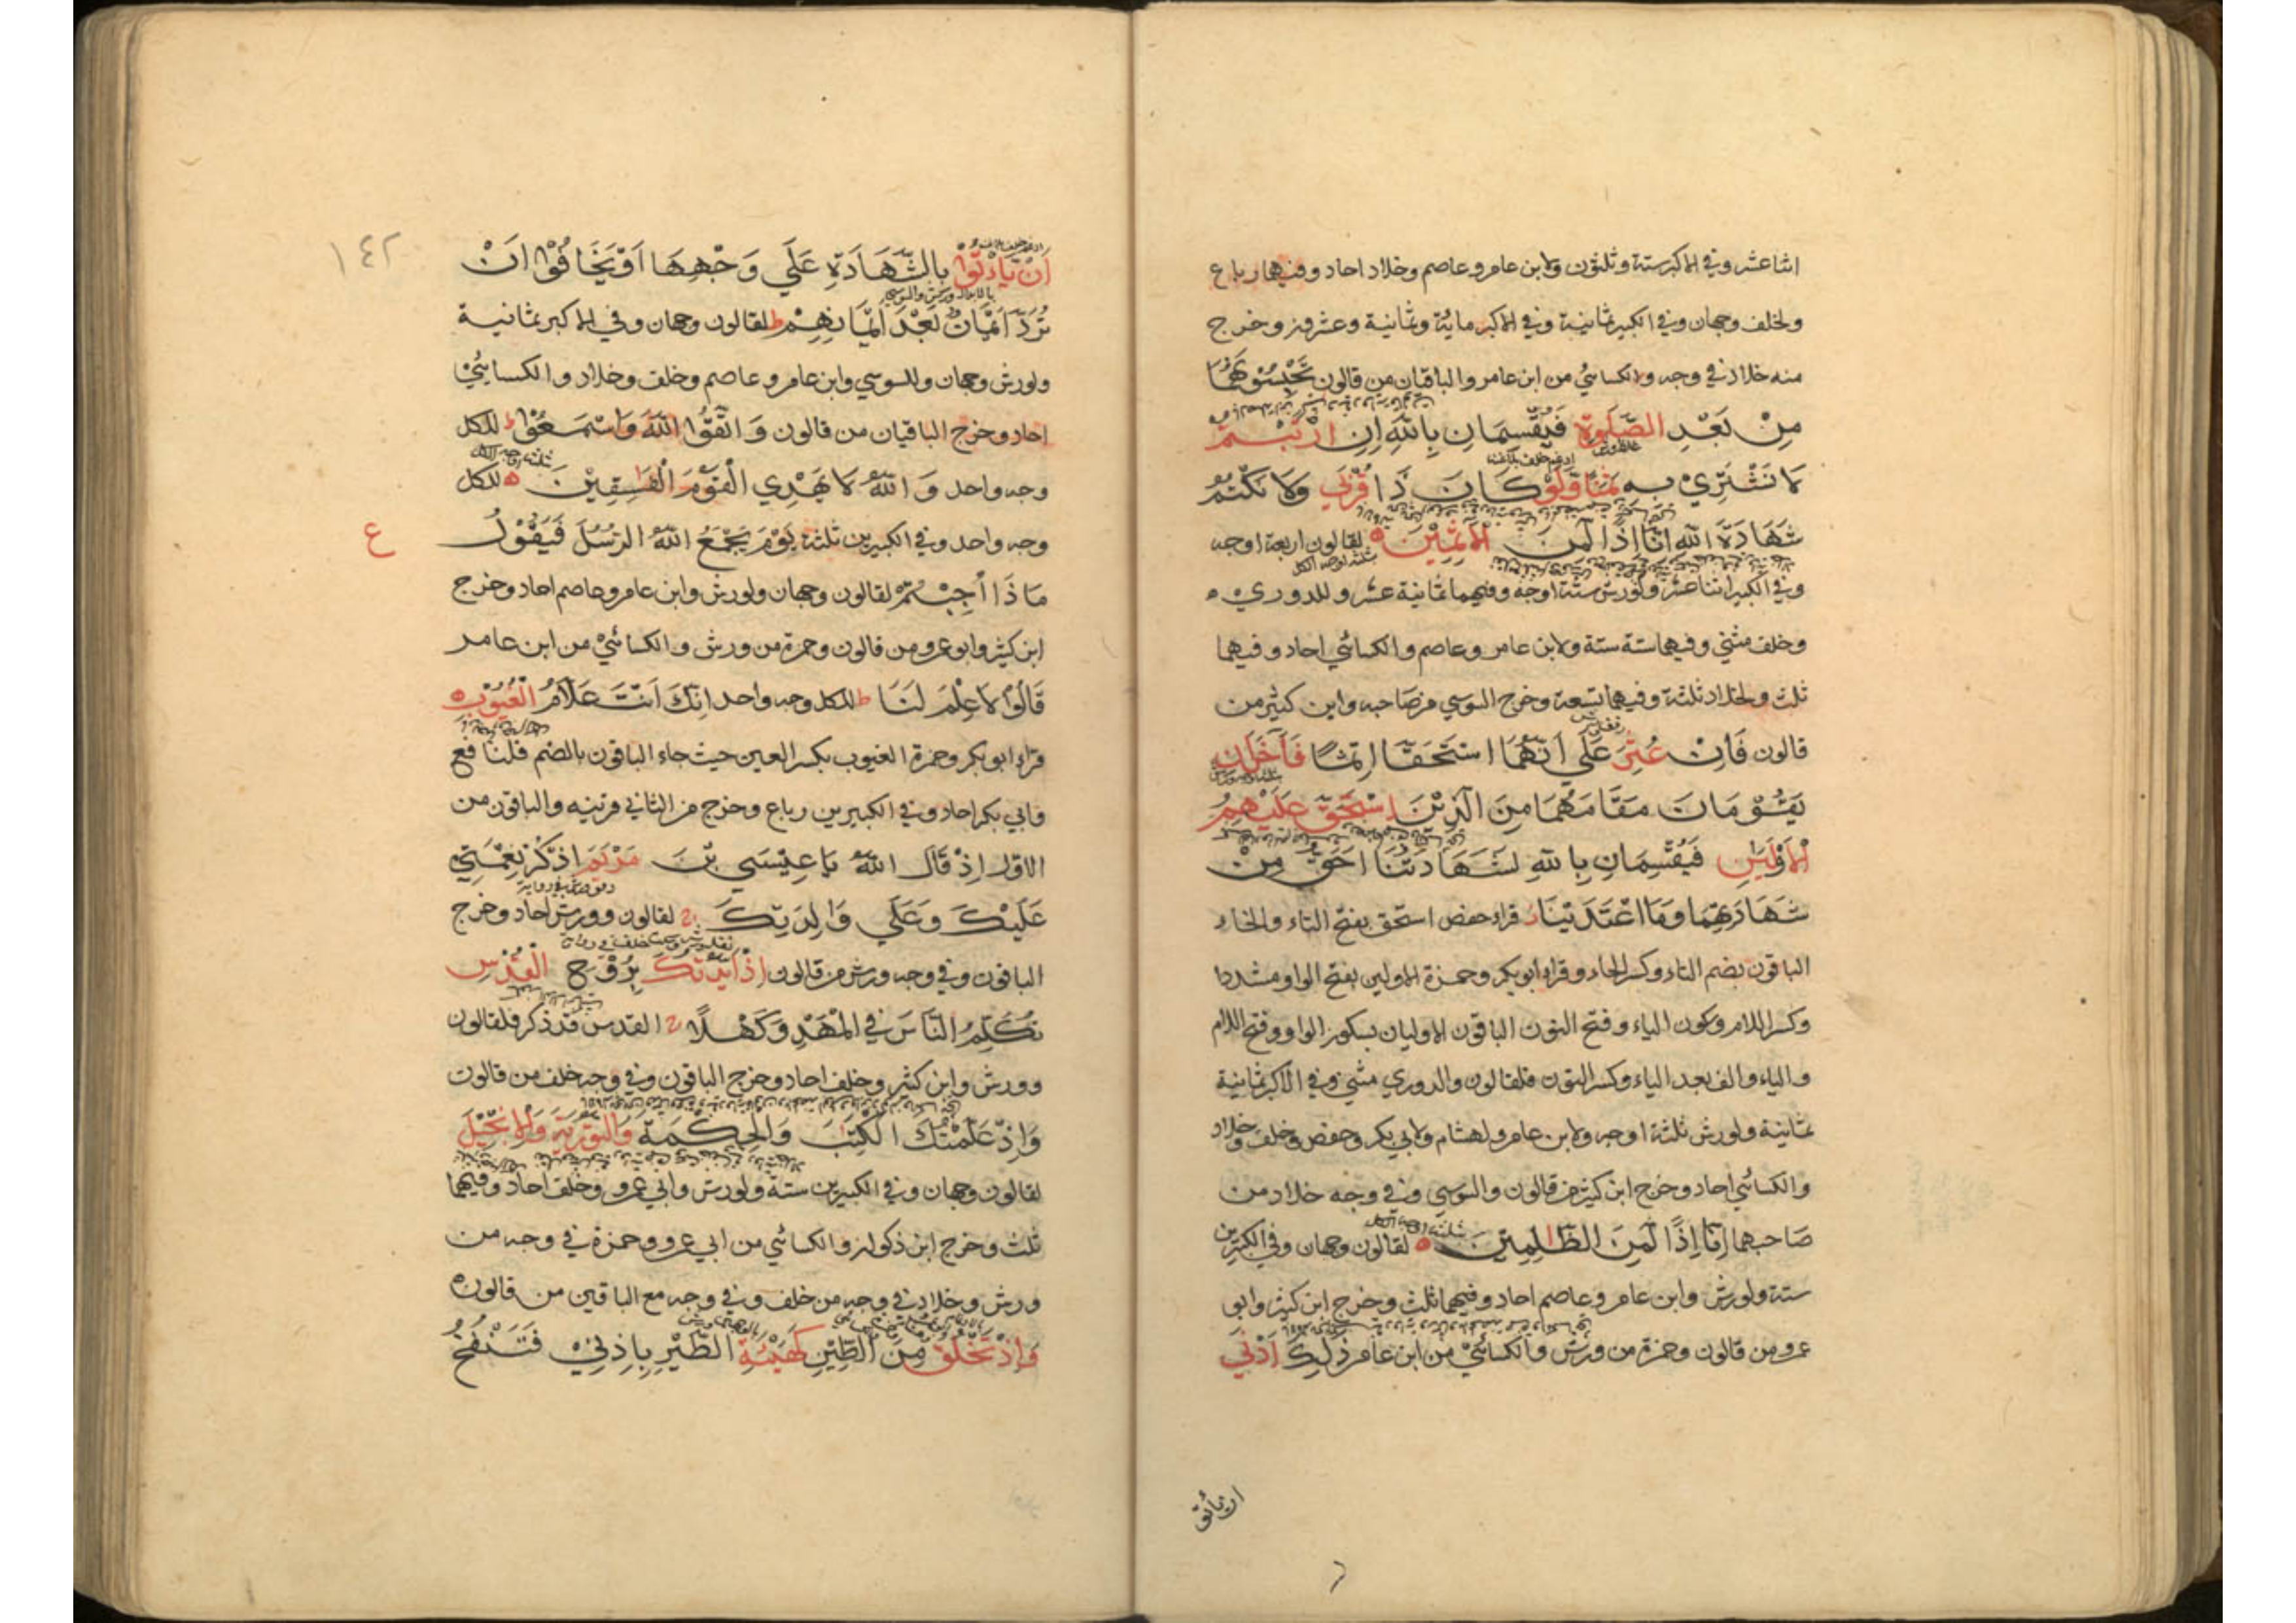 اثنا عشر وفي الاكبر ستة وثلثون ولابن عامر وعاصم وخلاد احاد وفيهما رباع
ولخلف وجهان وفي الكبير ثمانية وفي الاكبر ماية وثمانية وعشرون وخرج
منه خلاد في وجه والكسائي من ابن عامر والباقيان من قالون تَحْبِسُوْنَهُمَا
مِنْ بَعْدِ الصَّلٰوةِ فَيُقْسِمَانِ بِاللّٰهِ اِنِ ارْتَبْتُمْ
لَا نَشْتَرِيْ بِهٖ ثَمَنًا وَّلَوْ كَانَ ذَا قُرْبٰي وَلَا نَكْتُمُ
شَهَادَةَ اللّٰهِ اِنَّا اِذًا لَّمِنَ الْاٰثِمِيْنَ لقالون اربعة اوجه
وفي الكبير اثنا عشر ولورش ستة اوجه وفيهما ثمانية عشر وللدوري
وخلف مثني وفيهما ستة ستة ولابن عامر وعاصم والكسائي احاد وفيهما
ثلث ولخلاد ثلثة وفيهما تسعة وخرج السوسي من صاحبه وابن كثير من
قالون فَاِنْ عُثِرَ عَلٰي اَنَّهُمَا اسْتَحَقَّا اِثْمًا فَاٰخَرٰنِ
يَقُوْمَانِ مَقَامَهُمَا مِنَ الَّذِيْنَ اسْتَحَقَّ عَلَيْهِمُ
الْاَوْلَيٰنِ فَيُقْسِمَانِ بِاللّٰهِ لَشَهَادَتُنَا اَحَقُّ مِنْ
شَهَادَتِهِمَا وَمَا اعْتَدَيْنَا قراء حفص استحق بفتح التاء والحاء
الباقون بضم التاء وكسر الحاء وقراء ابو بكر وحمزة الاولين بفتح الواو مشددا
وكسر اللام وسكون الياء وفتح النون الباقون الاوليان بسكون الواو وفتح اللام
والياء والف بعد الياء وكسر النون فلقالون والدوري مثني وفي الاكبر ثمانية
ثمانية ولورش ثلثة اوجه ولابن عامر ولهشام ولابي بكر وحفص وخلف وخلاد
والكسائي احاد وخرج ابن كثير من قالون والسوسي وفي وجه خلاد من
صاحبهما اِنَّا اِذًا لَّمِنَ الظّٰلِمِيْنَ لقالون وجهان وفي الكبيرين
ستة ولورش وابن عامر وعاصم احاد وفيهما ثلث وخرج ابن كثير وابو
عمرو من قالون وحمزة من ورش والكسائي من ابن عامر ذٰلِكَ اَدْنٰي
ان ياتو
١٤٢
اَنْ يَّاْتُوْا بِالشَّهَادَةِ عَلٰي وَجْهِهَا اَوْ يَخَافُوْا اَنْ
تُرَدَّ اَيْمَانٌ بَعْدَ اَيْمَانِهِمْ ط لقالون وجهان وفي الاكبر ثمانية
ولورش وجهان وللسوسي وابن عامر وعاصم وخلف وخلاد والكسائي
احاد وخرج الباقيان من قالون وَاتَّقُوا اللّٰهَ وَاسْمَعُوْا ط للكل
وجه واحد وَاللّٰهُ لَا يَهْدِي الْقَوْمَ الْفٰسِقِيْنَ للكل
وجه واحد وفي الكبيرين ثلثة يَوْمَ يَجْمَعُ اللّٰهُ الرُّسُلَ فَيَقُوْلُ
ع
مَاذَا اُجِبْتُمْ لقالون وجهان ولورش وابن عامر وعاصم احاد وخرج
ابن كثير وابو عمرو من قالون وحمزة من ورش والكسائي من ابن عامر
قَالُوْا لَا عِلْمَ لَنَا ط للكل وجه واحد اِنَّكَ اَنْتَ عَلَّامُ الْغُيُوْبِ
قراء ابو بكر وحمزة الغيوب بكسر العين حيث جاء الباقون بالضم فلنافع
وابي بكر احاد وفي الكبيرين رباع وخرج من الثاني قرينه والباقون من
الاول اِذْ قَالَ اللّٰهُ يَا عِيْسَي بْنَ مَرْيَمَ اذْكُرْ نِعْمَتِيْ
عَلَيْكَ وَعَلٰي وَالِدَتِكَ لقالون وورش احاد وخرج
الباقون وفي وجه ورش من قالون اِذْ اَيَّدْتُّكَ بِرُوْحِ الْقُدُسِ
تُكَلِّمُ النَّاسَ فِي الْمَهْدِ وَكَهْلًا القدس قد ذكر فلقالون
وورش وابن كثير وخلف احاد وخرج الباقون وفي وجه خلف من قالون
وَاِذْ عَلَّمْتُكَ الْكِتٰبَ وَالْحِكْمَةَ وَالتَّوْرٰيةَ وَالْاِنْجِيْلَ
لقالون وجهان وفي الكبيرين ستة ولورش وابي عمرو وخلف احاد وفيهما
ثلث وخرج ابن ذكوان والكسائي من ابي عمرو وحمزة في وجه من
ورش وخلاد في وجه من خلف وفي وجه مع الباقين من قالون
وَاِذْ تَخْلُقُ مِنَ الطِّيْنِ كَهَيْئَةِ الطَّيْرِ بِاِذْنِيْ فَتَنْفُخُ